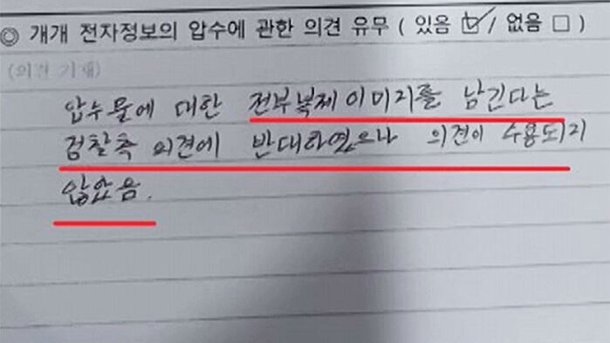 ◎ 개개 전자정보의 압수에 관한 의견 유무 ( 있음 ☑ / 없음 □ )
(의견 기재)
압수물에 대한 전부복제 이미지를 남긴다는
검찰측 의견에 반대하였으나 의견이 수용되지
않았음.